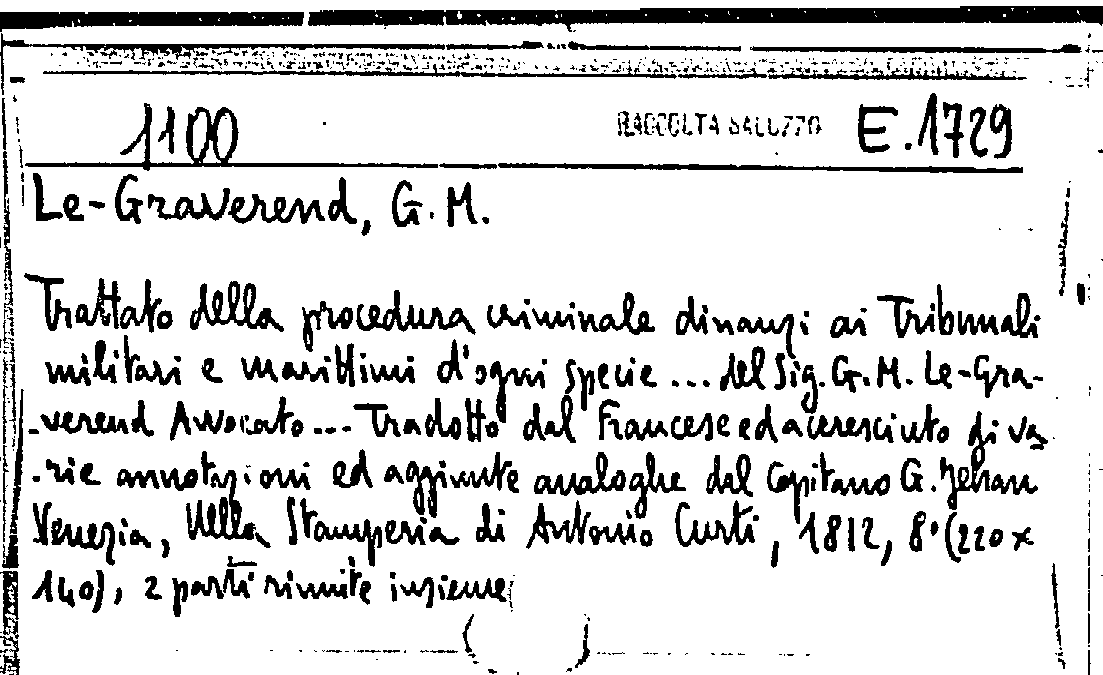 1100 RACCOLTA SALUZZO E.1729
Le-Graverend, G. M.
Trattato della procedura criminale dinanzi ai Tribunali
militari e marittimi d'ogni specie ... del Sig. G. M. Le-Gra-
-verend Avvocato ... Tradotto dal Francese ed accresciuto di va-
-rie annotazioni ed aggiunte analoghe dal Capitano G. Jehan
Venezia, Nella Stamperia di Antonio Curti, 1812, 8° (220 x
140), 2 parti riunite insieme